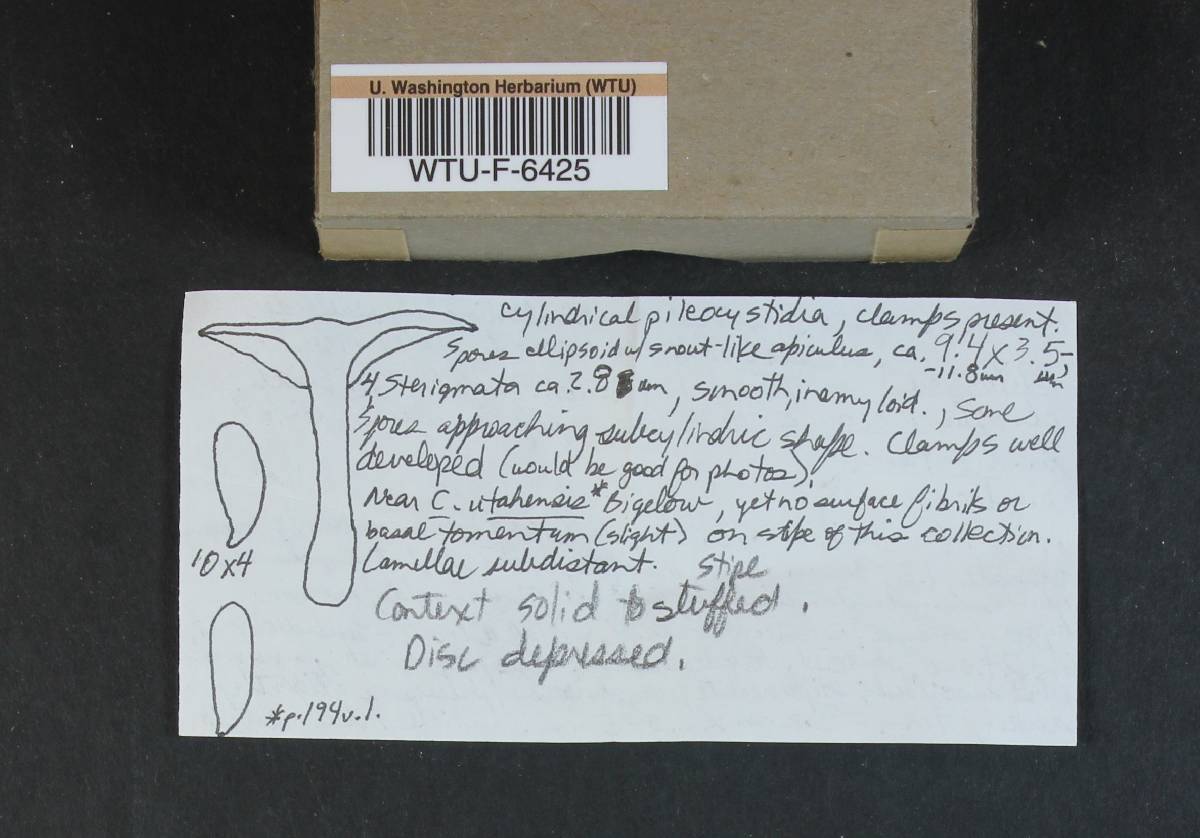 U. Washington Herbarium (WTU)
WTU-F-6425
cylindrical pileocystidia, clamps present.
Spores ellipsoid w/ snout-like apiculus, ca. 9.4 x 3.5-
-11.8 um um
4, Sterigmata ca. 2.8 um, smooth, inamyloid., some
Spores approaching subcylindric shape. Clamps well
developed (would be good for photos),
Near C. utahensis* Bigelow, yet no surface fibrils or
basal tomentum (slight) on stipe of this collection.
10x4
Lamellae subdistant.
stipe
Context solid to stuffed.
Disc depressed.
*p.194 v.1.